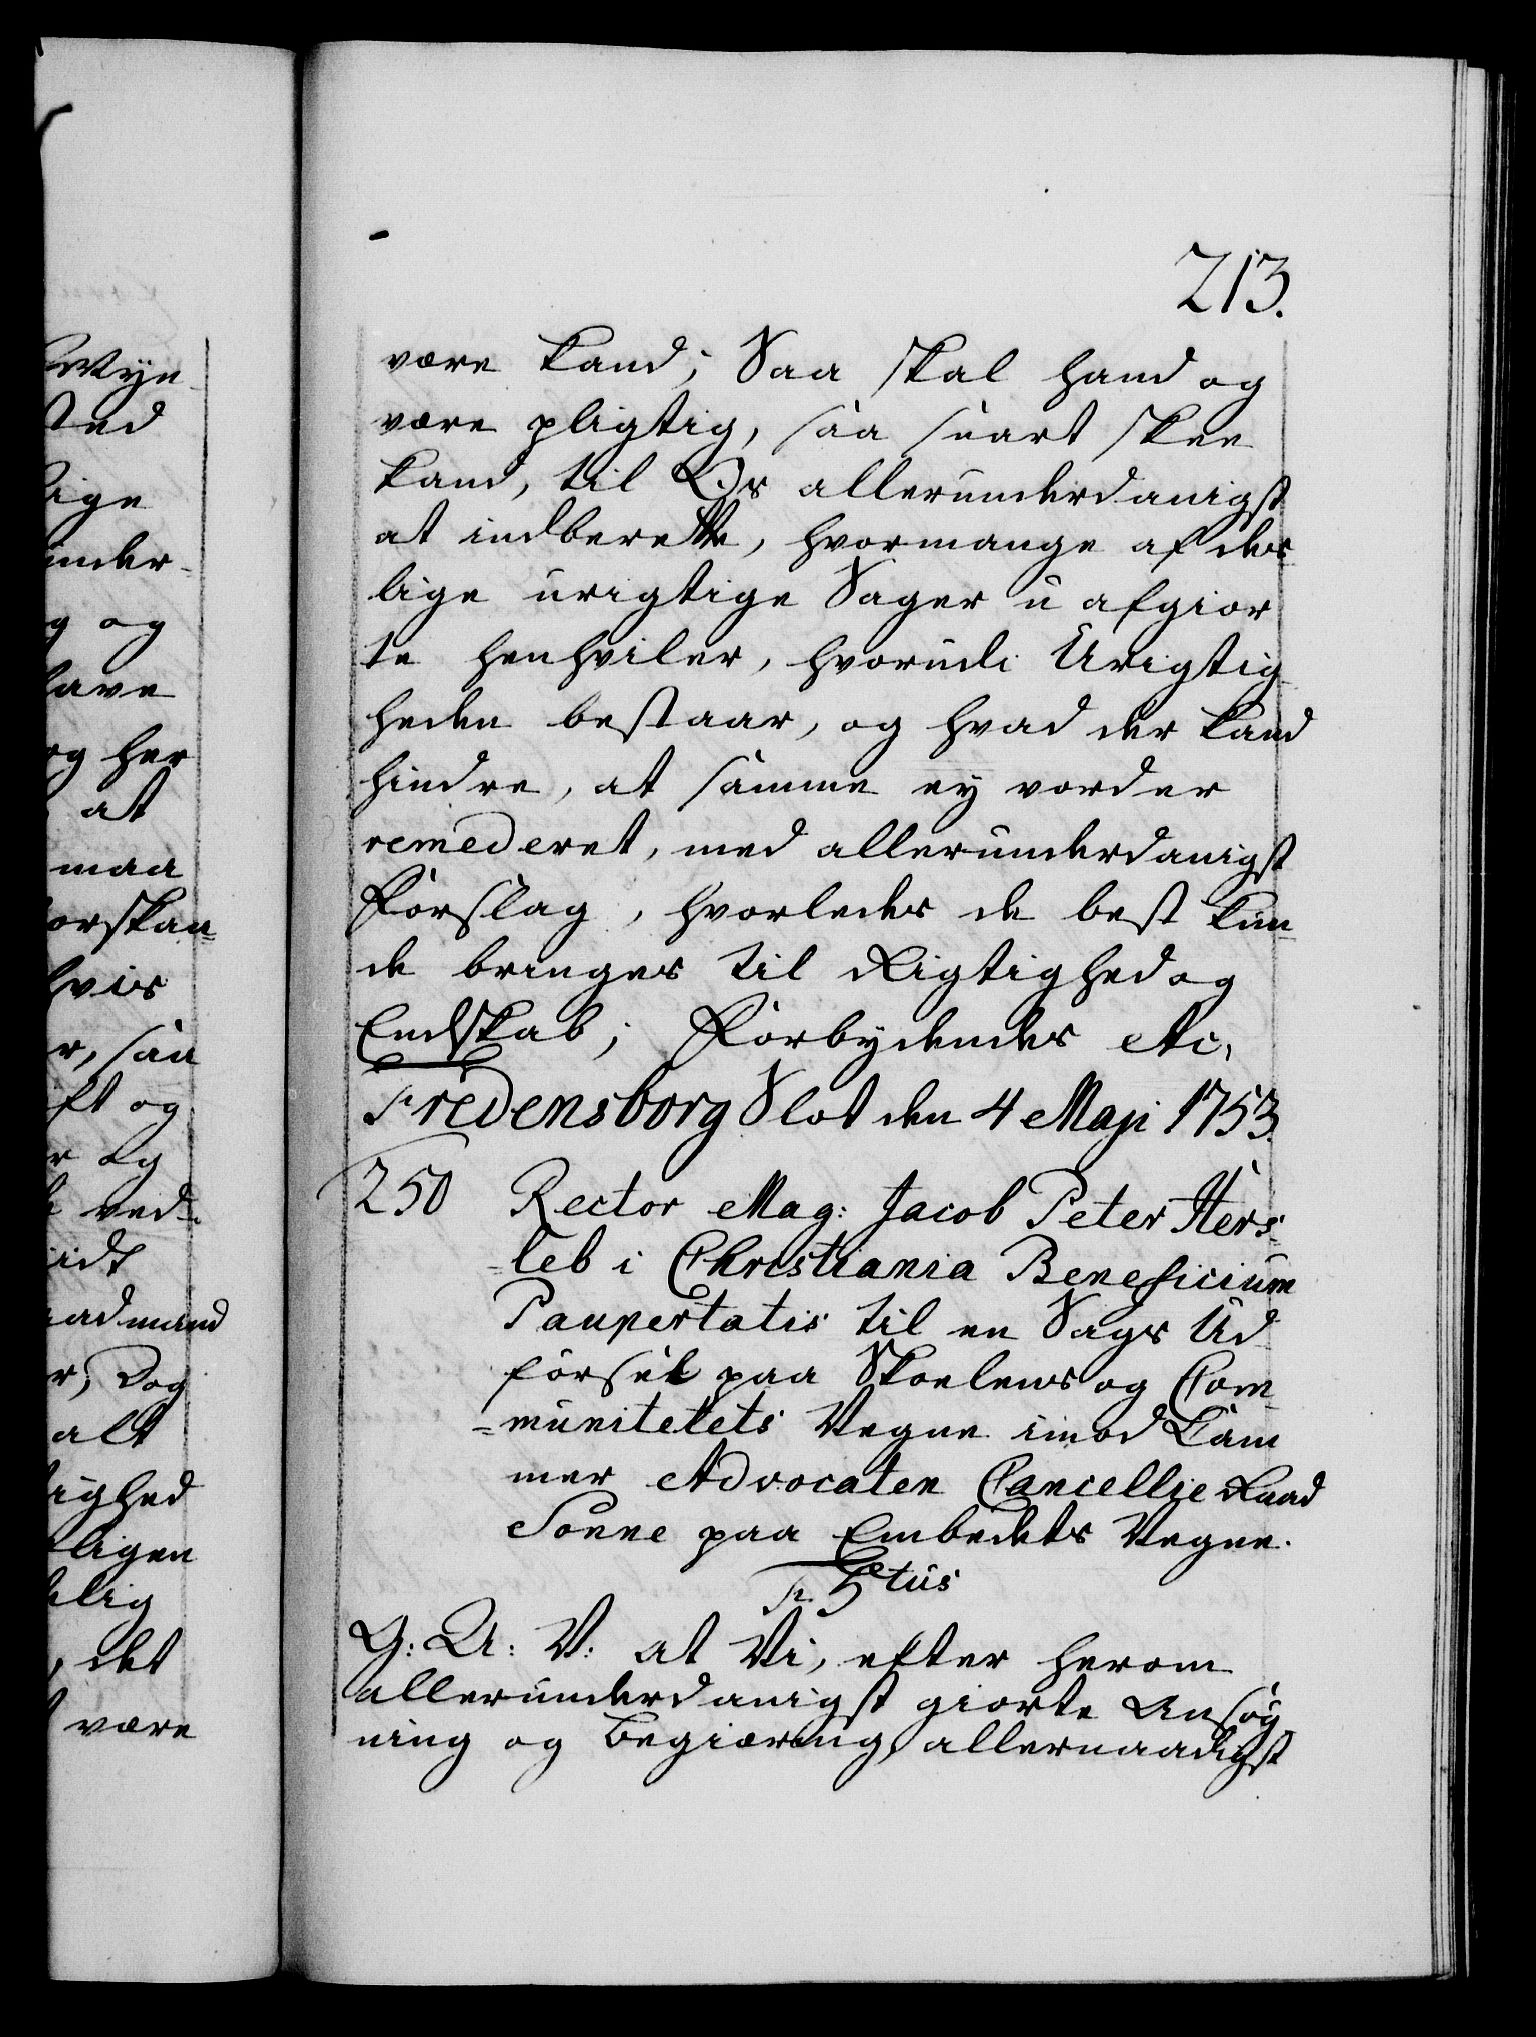 213.
være kand; Saa skal hand og
være pligtig, saa snart skee
kand, til Os allerunderdanigst
at indberette, hvormange af des
lige urigtige Sager u afgior
te henhviler, hvorudi Urigtig
heden bestaar, og hvad der kand
hindre, at samme ey vorder
remederet, med allerunderdanigst
Forslag, hvorledes de best kun-
de bringes til Rigtighed og
Endskab; Forbydendes etc.
Fredensborg Slot den 4 Maji 1753.
250 Rector Mag: Jacob Peter Hers-
leb i Christiania Beneficium
Paupertatis til en Sags Ud
førsel paa Skoelens og Com-
munitetets Vegne imod Cam
mer Advocaten Cancellie Raad
Sonne paa Embedets Vegne.
Fr. 5tus
G: A: V: at Vi, efter herom
allerunderdanigst giorte Ansøg
ning og begiæring, allernaadigst
Wÿn
sted
lige
under-
g og
have
og her
at
maa
orskan-
hvis
r, saa
ft og
r og
ved-
idt
admand
r, Dog
alt
ighed
ligen
elig
, det
være